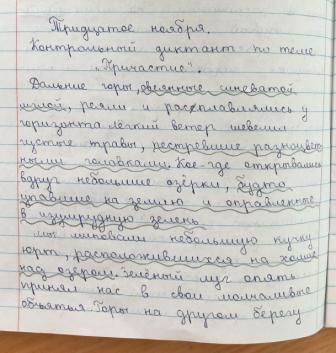 Тридцатое ноября.
Контрольный диктант по теме
„Причастие".
Дальние горы, овеянные синеватой
мглой, реяли и расплавлялись у
горизонта лёгкий ветер шевелил
густые травы, пестревшие разноцвет
ными головками. Кое-где открывались
вдруг небольшие озёрки, будто
упавшие на землю и оправленные
в изумрудную зелень
мы миновали небольшую кучку
юрт, расположившихся на холме
над озером. Зелёный луг опять
принял нас в свои молчаливые
объятья. Горы на другом берегу